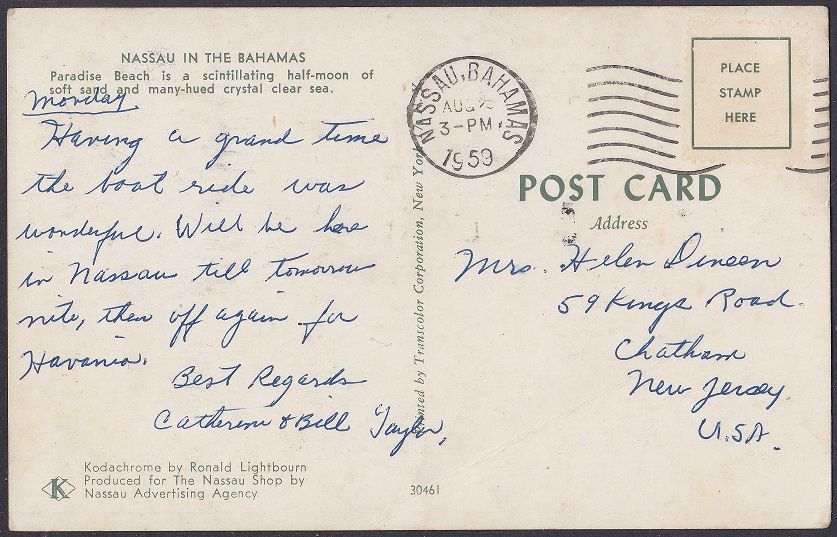 NASSAU IN THE BAHAMAS
Paradise Beach is a scintillating half-moon of
soft sand and many-hued crystal clear sea.
Monday.
Having a grand time
the boat ride was
wonderful. Will be here
in Nassau till tomorrow
nite, then off again for
Havania.
Best Regards
Catherine & Bill Taylor,
Kodachrome by Ronald Lightbourn
Produced for The Nassau Shop by
Nassau Advertising Agency
K
Printed by Transcolor Corporation, New York
30461
NASSAU, BAHAMAS
AUG
3-PM
1959
PLACE
STAMP
HERE
POST CARD
Address
Mrs. Helen Dineen
59 Kings Road.
Chatham
New Jersey.
U.S.A.